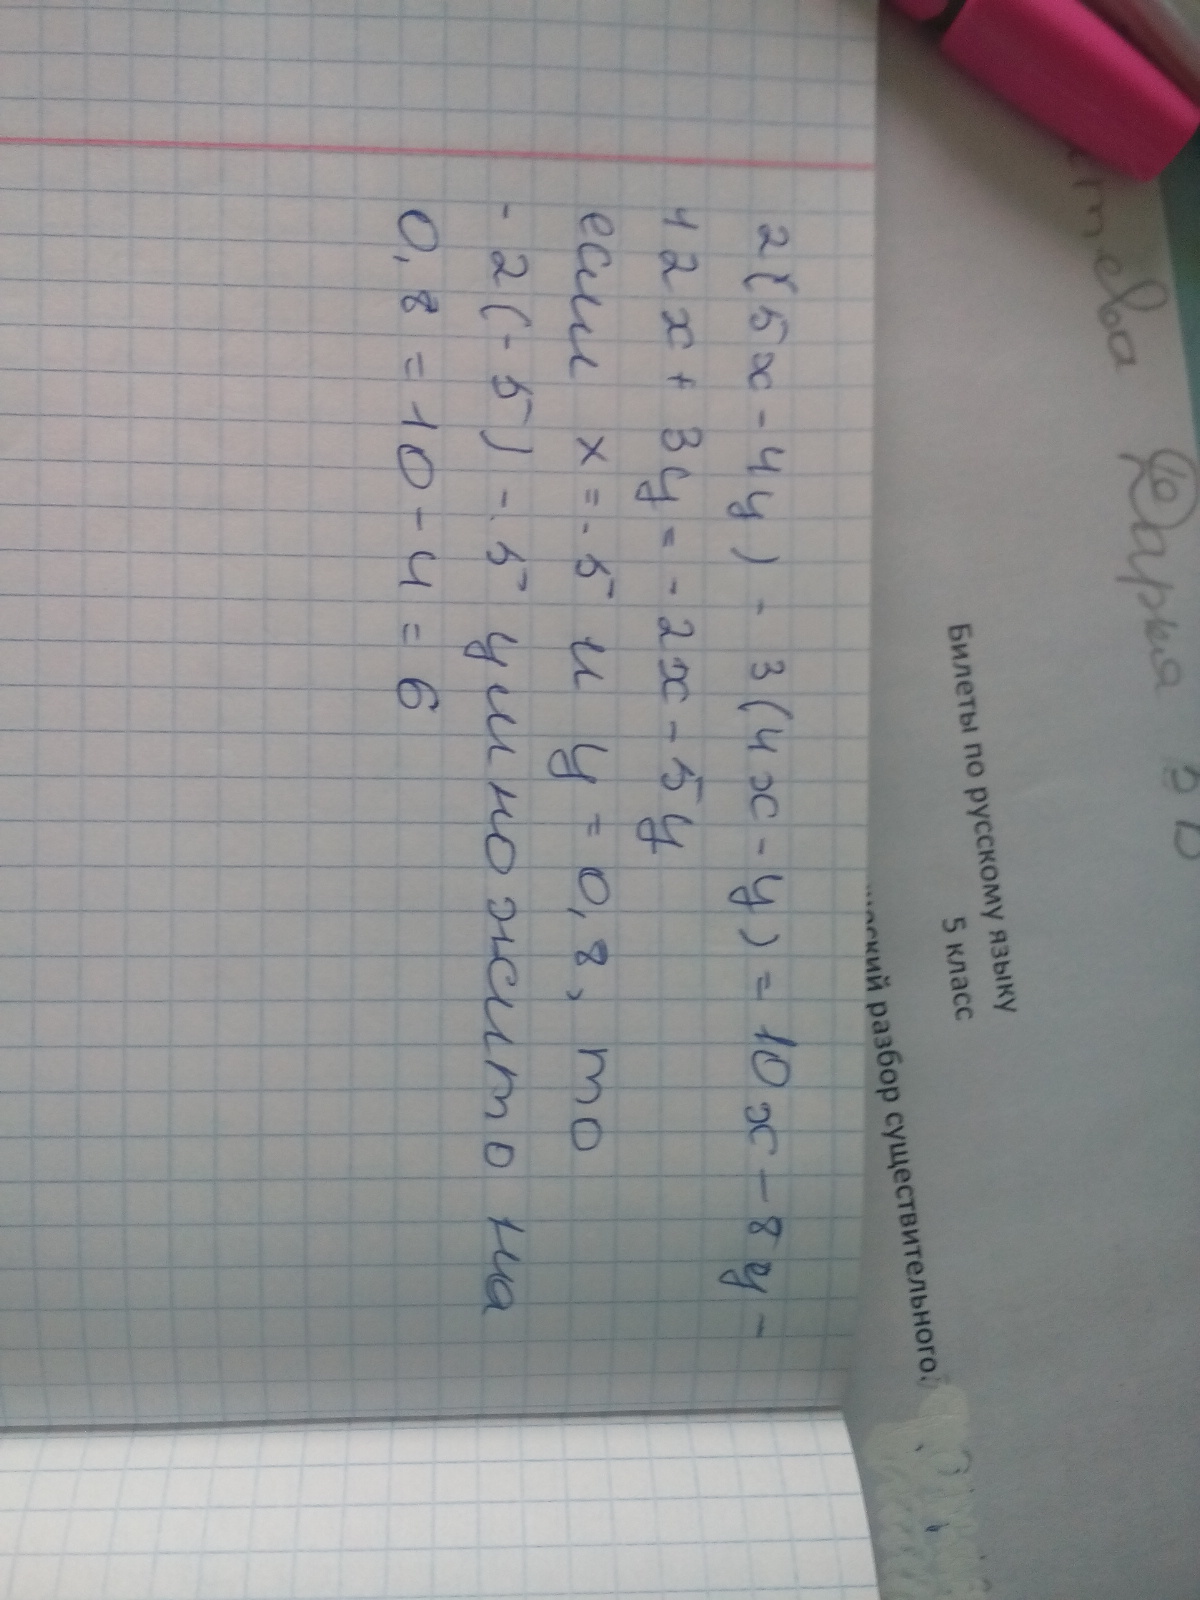 Дарья
Билеты по русскому языку
5 класс
разбор существительного
2(5x-4y)-3(4x-y)=10x-8y-
12x+3y=-2x-5y
если x=-5 и y=0,8, то
-2(-5)-5 умножито на
0,8=10-4=6